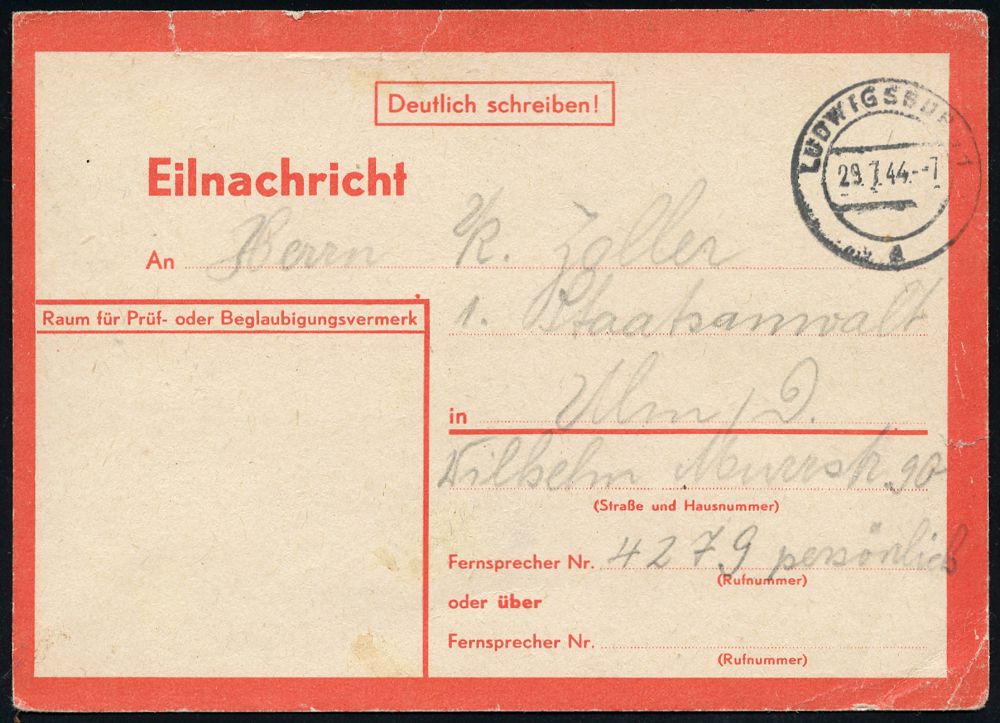 Deutlich schreiben!
LUDWIGSBURG 1
29.7.44.--7
a
Eilnachricht
An Herrn K. Zoller
Raum für Prüf- oder Beglaubigungsvermerk
1. Staatsanwalt
in Ulm/D.
Wilhelm Murrstr. 90
(Straße und Hausnummer)
Fernsprecher Nr. 4279 persönlich
(Rufnummer)
oder über
Fernsprecher Nr.
(Rufnummer)